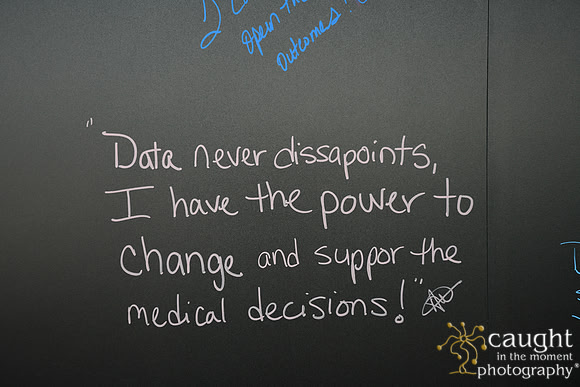 open the
outcomes!
"Data never dissapoints,
I have the power to
change and suppor the
medical decisions!"
caught
in the moment
photography®